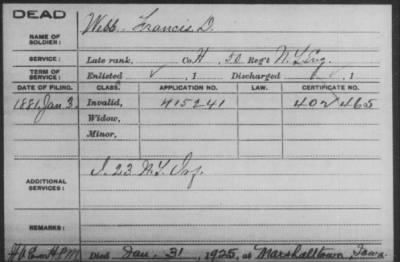 DEAD
NAME OF SOLDIER: Webb, Francis D.
SERVICE: Late rank, Co. H, 50 Reg't N.Y. Eng.
TERM OF SERVICE: Enlisted , 1 Discharged , 1
DATE OF FILING. CLASS. APPLICATION NO. LAW. CERTIFICATE NO.
1881, Jan. 3. Invalid, 415241 402465
Widow,
Minor,
ADDITIONAL SERVICES: I. 23 N.Y. Inf.
REMARKS:
Died Jan. 31, 1925, at Marshalltown, Iowa.